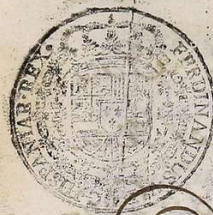 FERDINANDUS
HISPANIAR.REX.